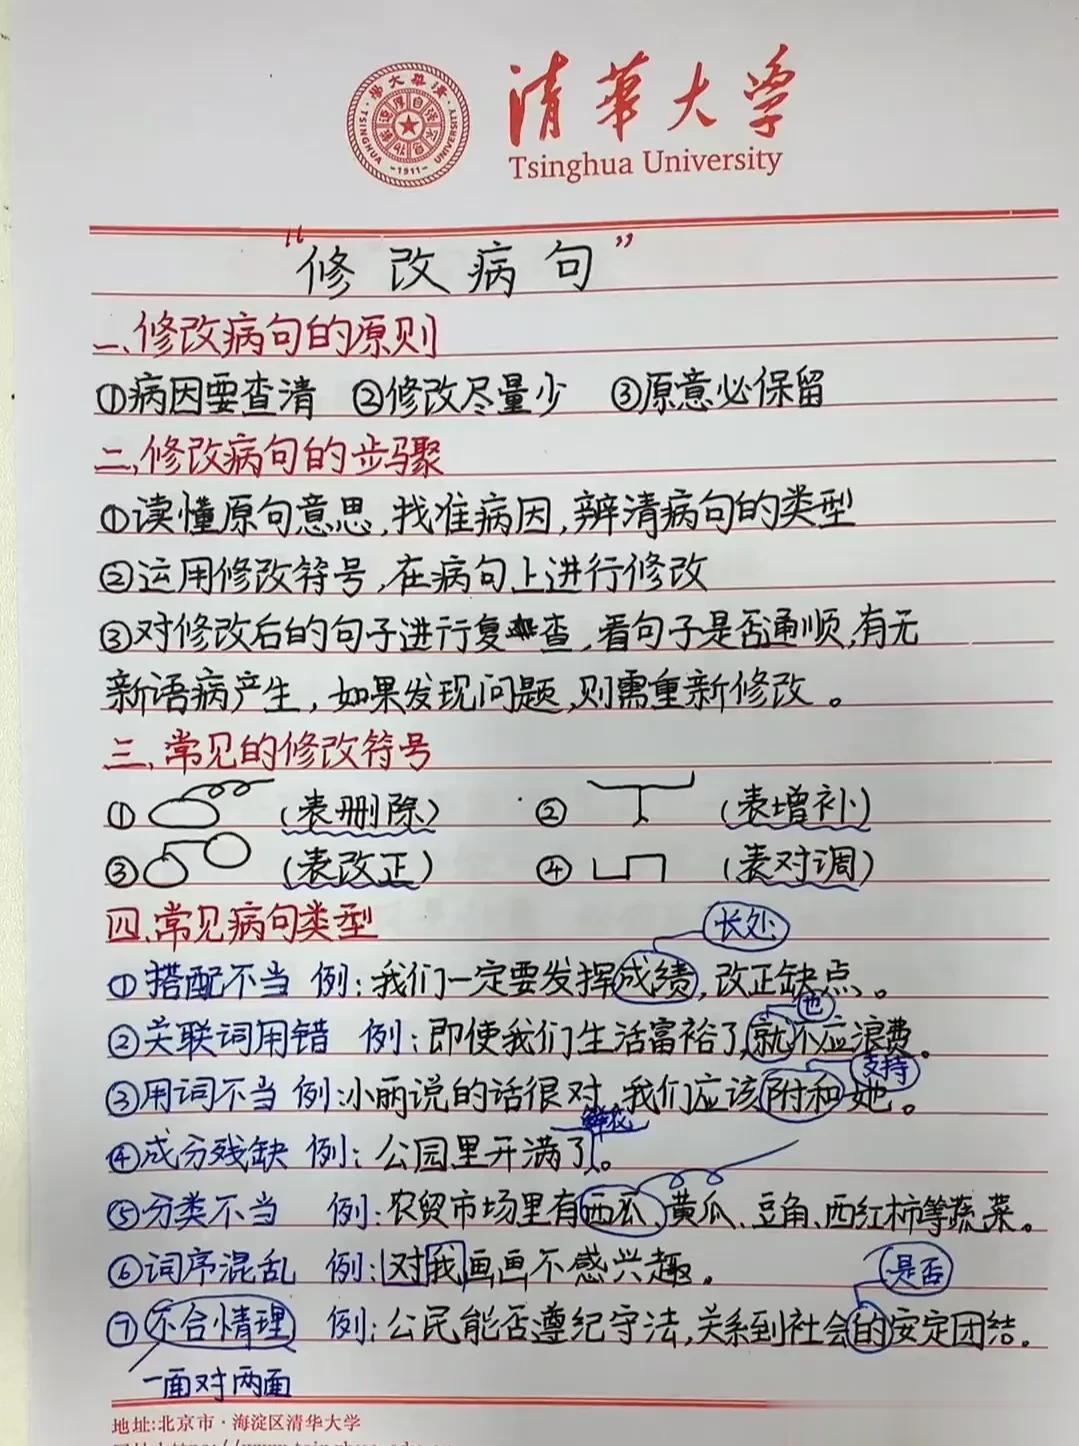 清华大学
Tsinghua University
TSINGHUA UNIVERSITY
-1911-
“修改病句”
一、修改病句的原则
①病因要查清 ②修改尽量少 ③原意必保留
二、修改病句的步骤
①读懂原句意思,找准病因,辨清病句的类型
②运用修改符号,在病句上进行修改
③对修改后的句子进行复查,看句子是否通顺,有无
新语病产生,如果发现问题,则需重新修改。
三、常见的修改符号
① (表删除) ② (表增补)
③ (表改正) ④ (表对调)
四、常见病句类型
长处
①搭配不当 例:我们一定要发挥成绩,改正缺点。
也
②关联词用错 例:即使我们生活富裕了,就不应浪费。
支持
③用词不当 例:小丽说的话很对,我们应该附和她。
鲜花
④成分残缺 例:公园里开满了。
⑤分类不当 例:农贸市场里有西瓜、黄瓜、豆角、西红柿等蔬菜。
⑥词序混乱 例:对我画画不感兴趣。
是否
⑦不合情理 例:公民能否遵纪守法,关系到社会的安定团结。
一面对两面
地址:北京市·海淀区清华大学